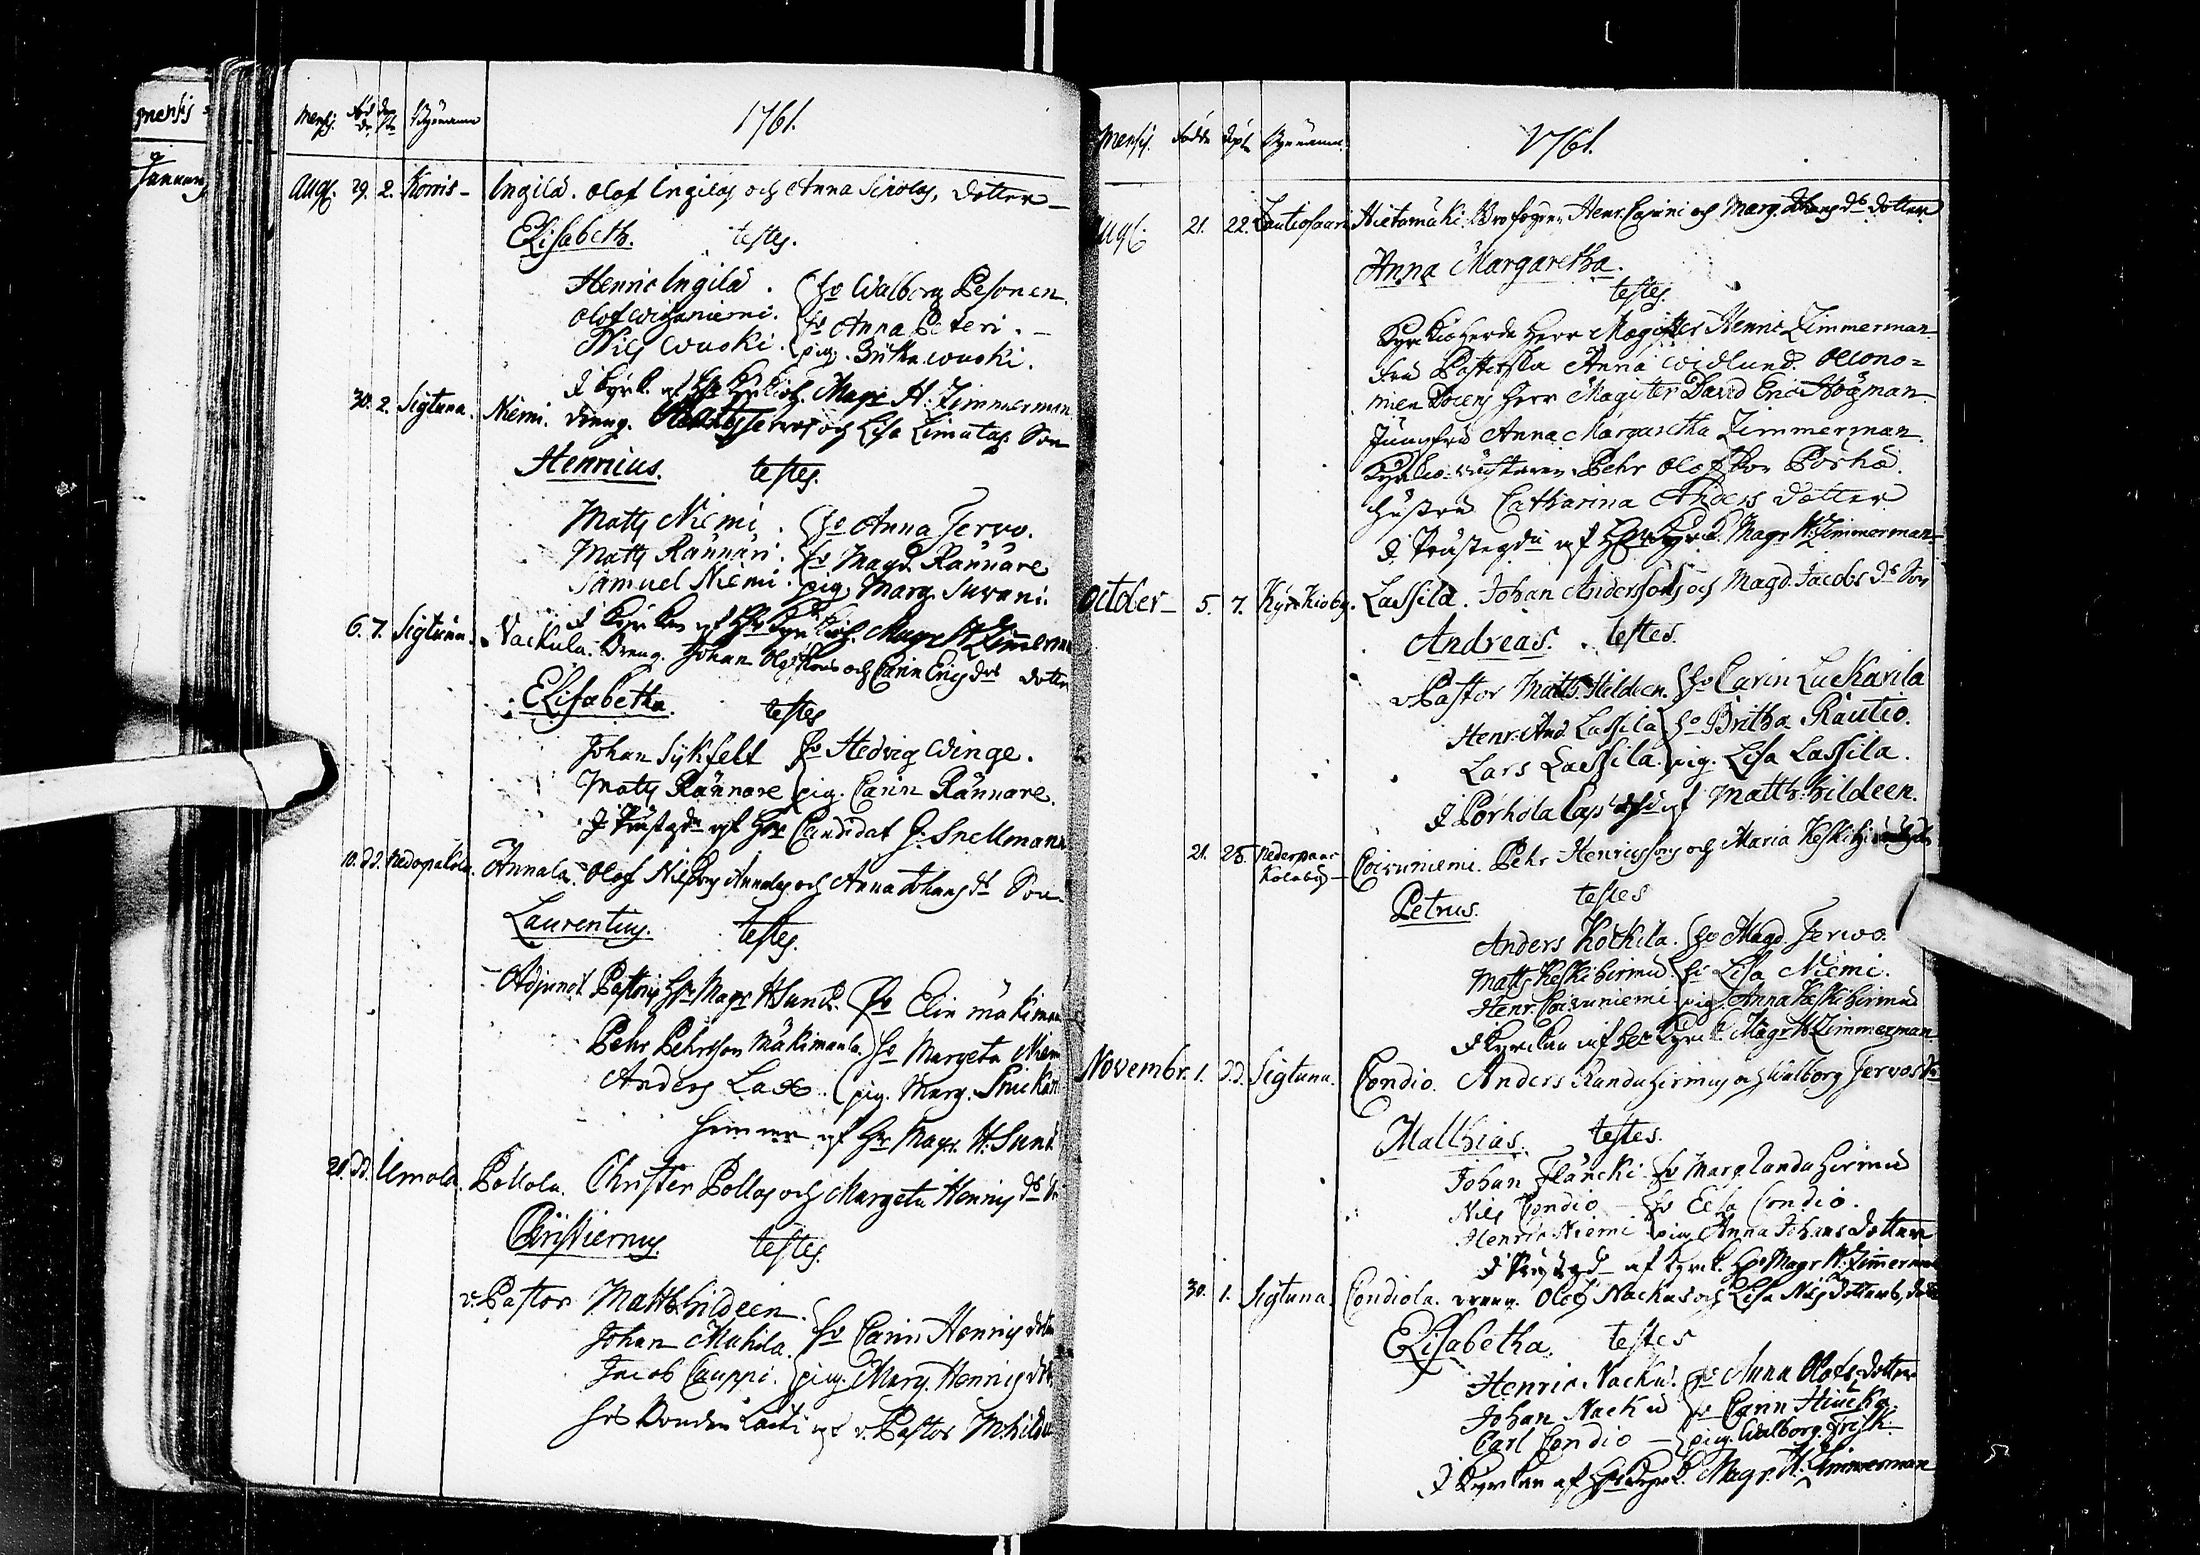 mensis
Januarij
Mensj. Föd de Döp te Bÿenamn 1761.
Aug. 29. 2. Korris- Ingilä. Olof Ingilas och Anna Sirolas, dotter
Elisabeth. testes.
Henric Ingilä. ho Walborg Pesonen.
Olof ho Anna Peteri.
Nils wuoki. pig. Britha wuoki.
I Kyrk. af Hr Kyrkioh. Magr H. Zimmerman
30. 2. Sigtuna. Niemi. dreng. och Lisa Limatas Son
Henricus. testes.
Matts Niemi. ho Anna Jervo.
Matts Rännäri. ho Magd. Rännare
Samuel Niemi. pig. Marg. Surani.
I Kyrkan af Hr Kyrkioh. Magr H Zimmerman
6. 7. Sigtuna. Nackula. Dreng. Johan Olofssons och Carin Erics dr dotter
Elisabetha. testes
Johan Sykfelt ho Hedvig Winge.
Matts Rännare pig. Carin Rännare.
I Prästgdn af Hr Candidat J. Snellman
10. dd. Nedopalola. Annala. Olof Nilsons Annalas och Anna Johans dr Son.
Laurentius. testes.
Adjunct. Pastoris Hr Magr H Sund. ho Elin mäkimaa
Pehr Pehrsson Mäkimaula. ho Margeta Niem
Anders Lax. pig. Marg. Snickar
hemma af Hr Magr. H. Sund
21. dd. Uemola. Pollola. Christer Pollas och Margeta Henrics dr
Christiernus. testes.
v. Pastor Matth. hildeen.
Johan Mukila. ho Carin Henrics dotter
Jacob Cauppi. pig. Marg. Henrics dotter
hos Bonden Laiti af v. Pastor M. hildeen
Mensis. Födde Döpt Bÿenamn. 1761.
Aug. 21. 22. Lautiosaari Hietomäki. Henr. Capini och Marg. Johans dr dotter
Anna Margaretha.
testes
Kyrkioherde Herr Magister Henric Zimmerman
Fru Pastorska Anna Widlund. Oecono=
mien Docens Herr Magister David Eric Högman.
Jungfru Anna Margaretha Zimmerman.
Kyrkio-Wäktaren Pehr Olofson Porkä.
hustru Catharina Anders dotter
I Prästegdn af Hr Kyrk. Magr H. Zimmerman
October 5. 7. Kyrkioby. Lassila. Johan Anderssons och Magd. Jacobs dr Son
Andreas. testes.
v. Pastor Matth. Hildeen. ho Carin Luckarila
Henr. And. Lassila ho Britha Rautio.
Lars Lassila. pig. Lisa Lassila.
I Porhola af Matth. hildeen.
21. 25. Nederpaar Kolaby Coivuniemi. Pehr Henricssons och Maria Keski
Petrus. testes
Anders Kockila. ho Magd. Jerwo.
Matts Keskihirmu ho Lisa Niemi.
Henr. Coivuniemi pig. Anna Keskihirmu
I Kyrckan af Hr Kyrck. Magr H Zimmerman
Novembr. 1. dd. Sigtuna. Condio. Anders Randahirmus och Walborg Jervos Son
Matthias. testes.
Johan Fläncki ho Marg. Randahirmu
Nils Condio ho Elsa Condio.
Henric Niemi pig Anna Johans dotter
I Prästgdn af Kyrck. Hr Magr H. Zimmerman
30. 1. Sigtuna. Condiola. dreng. Olof Nackus och Lisa Nils dotters, dotter
Elisabetha. testes
Henric Nacku. ho Anna Olofs dotter
Johan Nacku ho Carin Hiucka.
Carl Condio pig. Walborg Frisk.
I Kyrckan af Hr Kyrck. Magr. H. Zimmerman